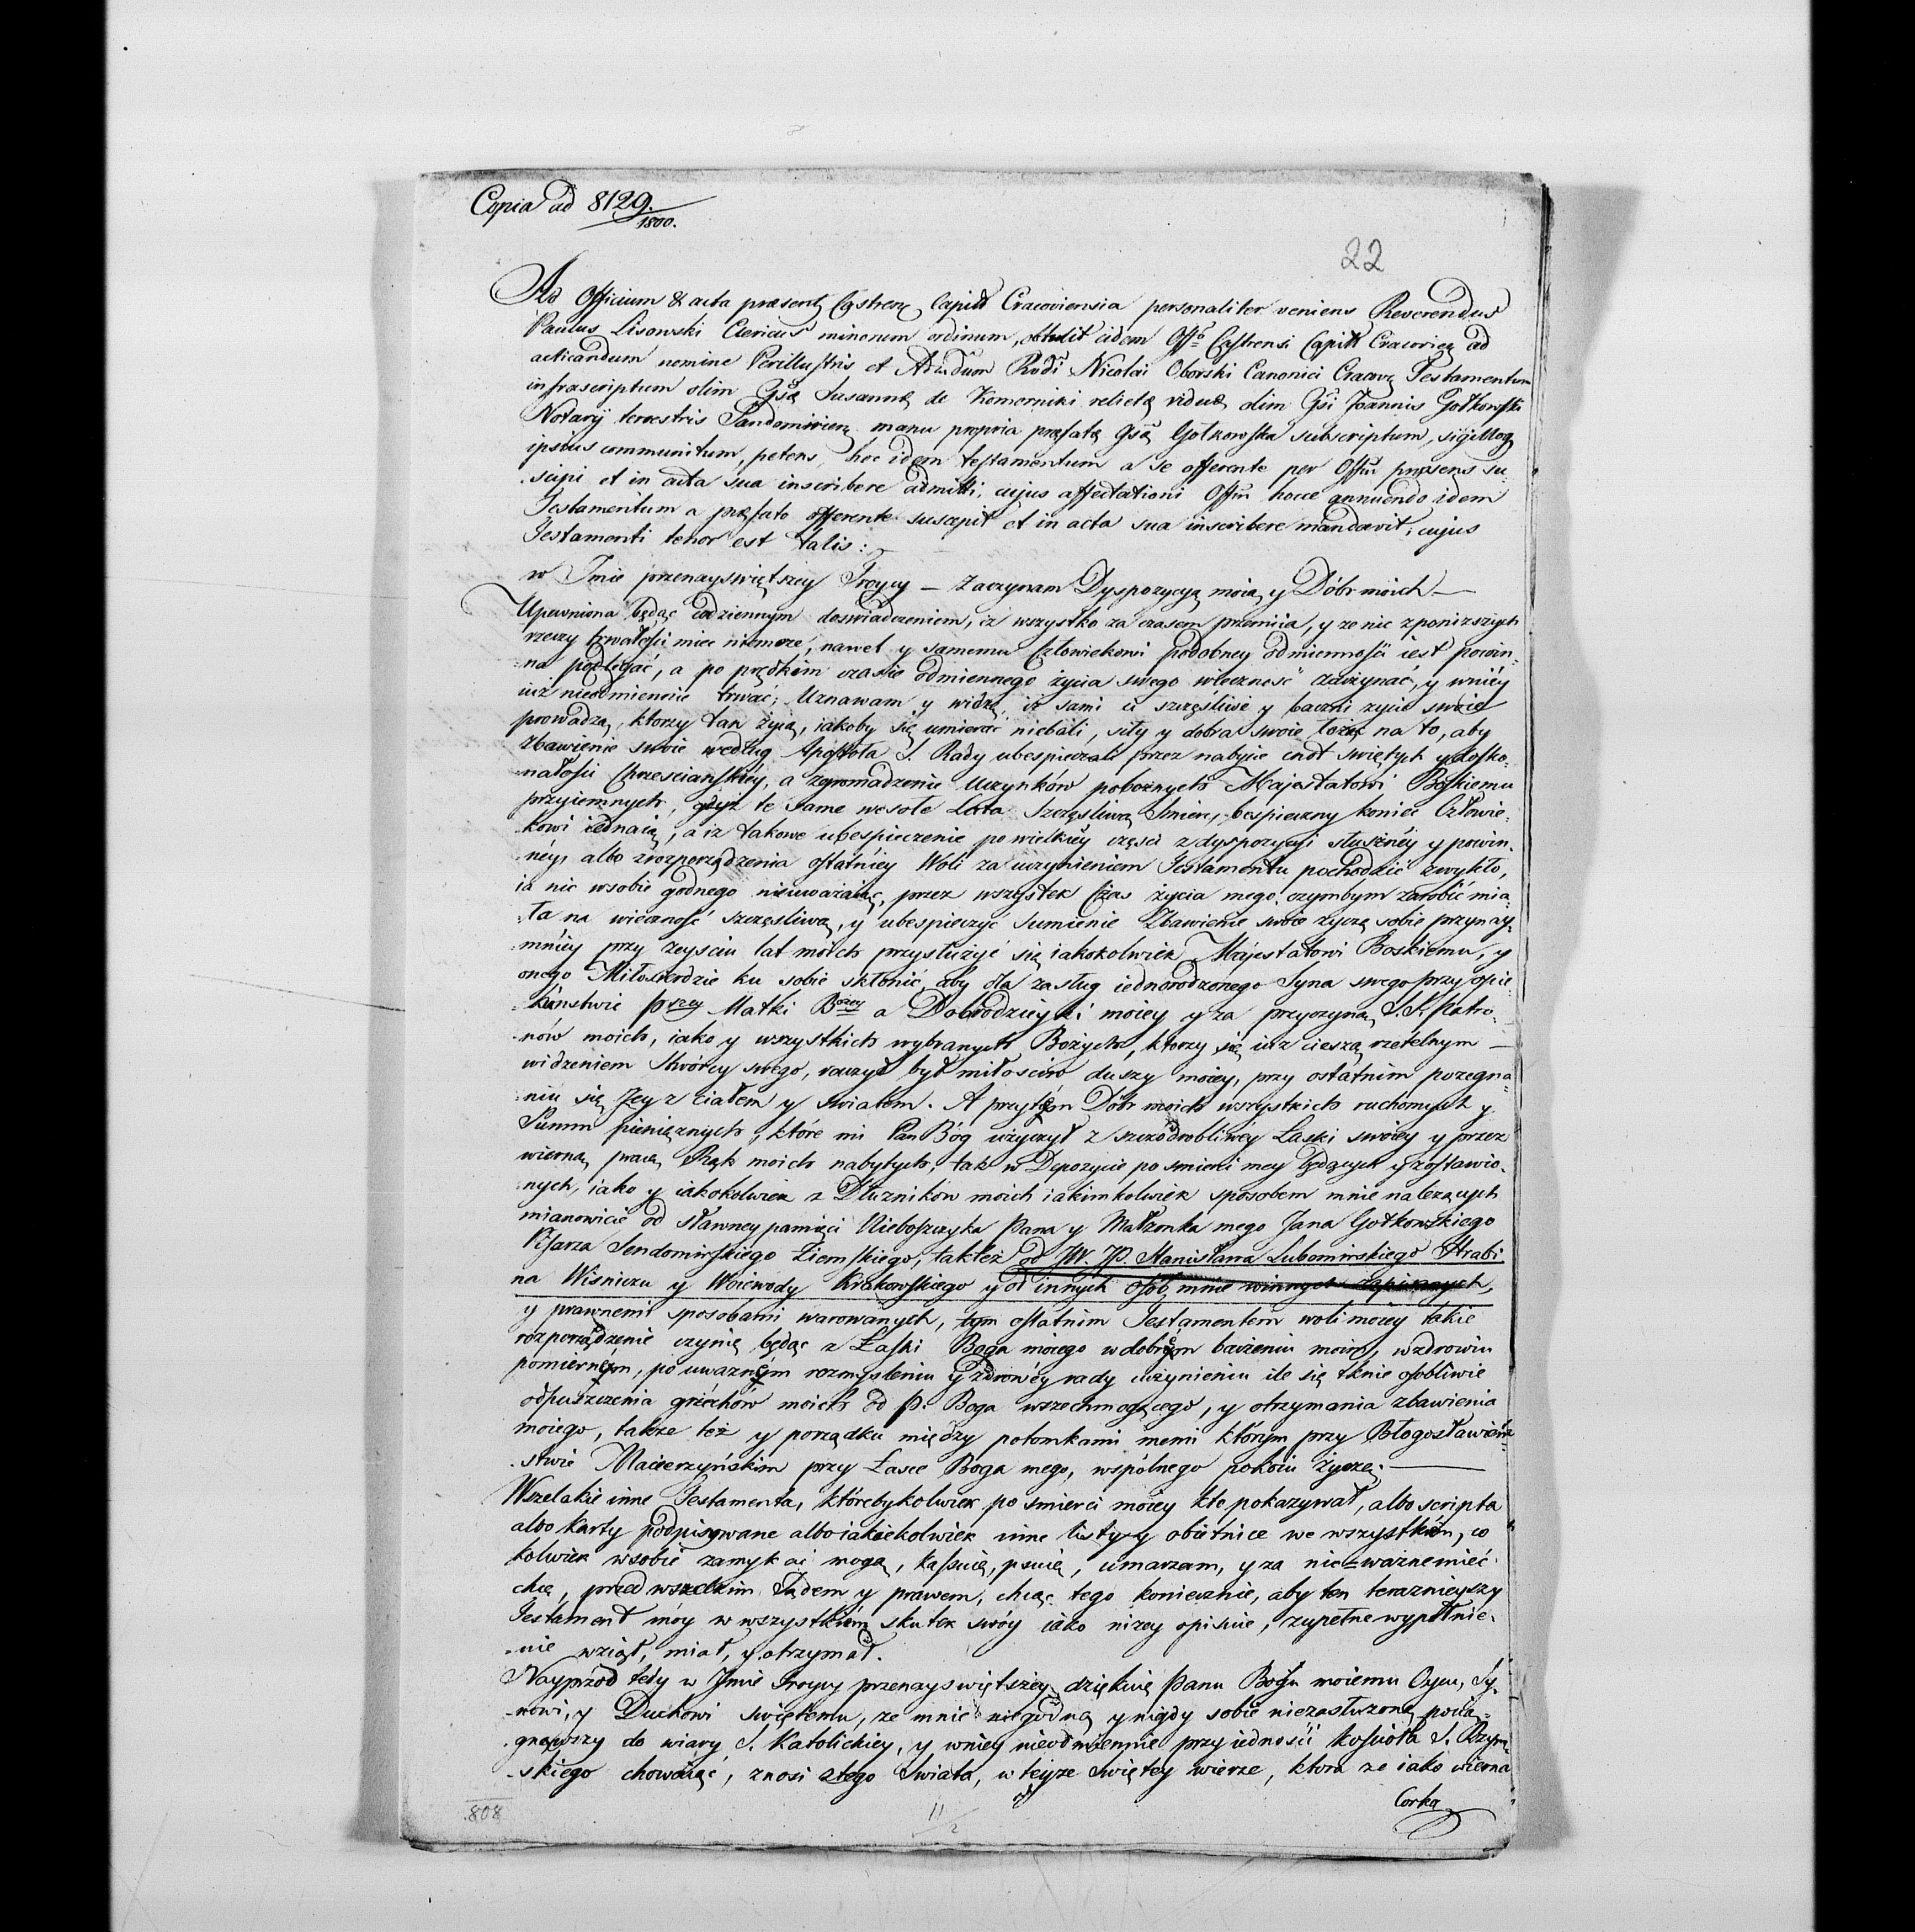 Copia ad 8129.
1800.
22
Ad Officium & acta præsentę Cąstrenę Capitł Cracoviensia personaliter veniens Reverendus
Paulus Lisowski Clericus minorum ordinum, obtulit eidem Offo Cąstrensi Capitł Cracovię ad
acticandum nomine Perillustris et Adm̃dum Rndi Nicolai Oborski Canonici Cracovę Testamentum
infrascriptum olim Gsę Susannę de Komorniki relictę viduę olim Gsi Joannis Gołkowski
Notarÿ terrestris Sandomirienę manu propria præfatę Gsę Gołkowska subscriptum, sigilloq
ipsius communitum, petens, hoc idem testamentum a se offerente per Offm præsens su-
scipi et in acta sua inscribere admitti; cujus affectationi Offm hocce annuendo idem
Testamentum a præfato offerente suscepit et in acta sua inscribere mandavit; cujus
Testamenti tenor est talis:
w Imie przenayswiętszey Troycy — Zaczynam Dyspozycyą moią y Dóbr moich —
Upewniona będąc codziennym doswiadczeniem, iz wszystko za czasem przemiia, y ze nic z ponizszych
rzeczy trwałosci miec niemoze, nawet y samemu Człowiekowi podobney odmiennosci iest powin-
na podlegać, a po prędkim czasie odmiennego życia swego wieczność zaczynać, y wniéy
iuż nieodmiennie trwać; Uznawam y widzę, iz sami ci szczęśliwie y baczni zycie swoie
prowadzą, ktorzy tan żyią, iakoby się umierać niebali, siły y dobra swoie łożą na to, aby
Zbawienie swoie według Apostoła S. Rady ubespieczali przez nabycie cnót swiętych y dosko-
nałosci Chrzescianskiéy, a zgromadzenie uczynków pobożnych Majestatowi Boskiemu
przyiemnych, gdyż te same wesołe Lata Szczęśliwą Smierc, bespieczny koniec Człowie-
kowi iednaią, a iz takowe ubespieczenie po wielkiéy części z dyspozycyi słuszney y powin-
néy, albo z rozporządzenia ostatniey Woli za uczynieniem Testamentu pochodzić zwykło,
ia nic wsobie godnego nieuważaiąc, przez wszystek Czas życia mego, czymbym zarobić mia-
ła na wieczność szczęsliwą, y ubespieczyć sumienie Zbawienie swoie zyczę sobie przynay-
mniéy przy zeysciu lat moich przysłużyć się iakokolwiek Májestatowi Boskiemu, y
onego Miłosierdzie ku sobie skłonić, aby dla zasług iednorodzonego Syna swego przy opie-
kuństwie pszey Matki Bozey a Dobrodzieyki moiey y za przyczyną S.S. Patro-
nów moich, iako y wszystkich wybranych Bożych, ktorzy się iuz cieszą rzetelnym —
widzeniem Stwórcy swego, raczył być miłościw duszy moiey, przy ostátnim pozegna-
niu się Jey z ciałem y swiatem. A przytém Dóbr moich wszystkich ruchomych y
Summ pieniężnych, które mi Pan Bóg użyczył z szczodrobliwéy Łaski swoiey y przez
wierną pracę Rąk moich nabytych, tak w Depozycie po smierci mey będących y zostawio-
nych, iako y iakokolwiek z Dłużników moich iakimkolwiek sposobem mnie należących
mianowicie od sławney pamięci Nieboszczyka Pana y Małzonka mego Jana Gołkowskiego
Pisarza Sendomirskiego Ziemskiego, takteż od JW. JP. Stanisława Lubomirskiego Hrabi
na Wisniczu y Woiewody Krakowskiego y od innych osób mnie winnych zapisanych,
y prawnemi sposobami warowanych, tym ostatnim Testamentem woli moiey takie
rozporządzenie czynię będąc z Łaski Boga moiego w dobrém baczeniu moim, w zdrowiu
pomierném, po uważném rozmysleniu y zdrowéy rady użynieniu ile się tknie osobliwie
odpuszczenia grzéchów moich od P. Boga wszechmogącego, y otrzymania zbawienia
moiego, takze też y porządku między potomkami memi którym przy Błogosławień-
stwie Macierzyńskim przy Łasce Boga mego, wspólnego pokoiu życzę. —
Wszelakie inne Testamenta, którebykolwiek po smierci moiey kto pokazywał, albo scripta
albo Karty podpisywane albo iakiekolwiek inne listy y obietnice we wszystkiém, co
kolwiek wsobie zamykać mogą, kassuię, psuię, umarzam, y za nic-ważne mieć
chcę, przed wszelkim Sądem y prawem, chcąc tego koniecznie, aby ten teraznieyszy
Testament móy w wszystkiém skutek swóy iako nizey opisuie, zupełne wypełnie-
nie wziął, miał, y otrzymał.
Nayprzód tedy w Jmie Troycy przenayswiętszey dziękuię Panu Bogu moiemu Oycu, Sy-
nowi, y Duchowi swiętemu, ze mnie niegodną y nigdy sobie niezasłuzoną pocią-
gnąwszy do wiary S. Katolickiey, y wniey nieodmiennie przy iedności kościoła S. Rzym-
skiego chowaiąc, znosi ztego Swiata, w teyze swiętey wierze, ktora ze iako wierna
Corka
808
11/2